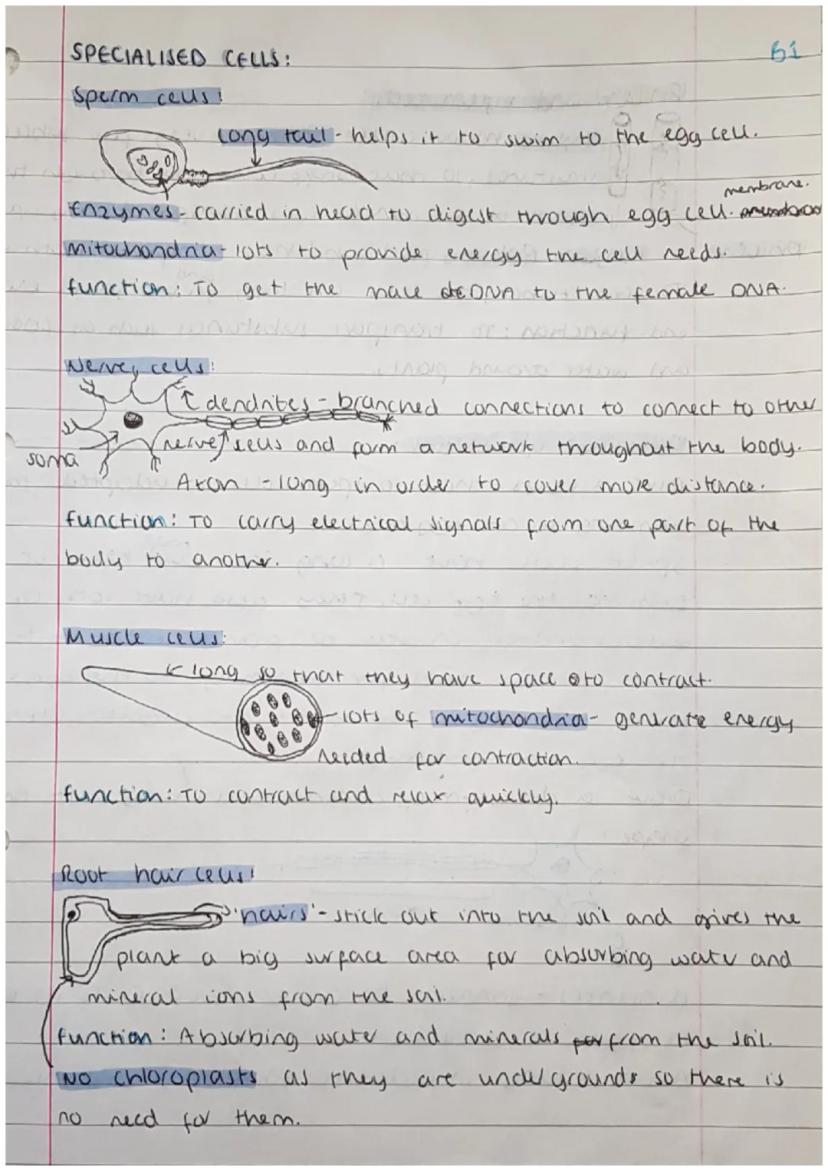 SPECIALISED CELLS:
B1
Sperm cells:
Long tail - helps it to swim to the egg cell.
membrane.
Enzymes - carried in head to digest through egg cell.
mitochondria - lots to provide energy the cell needs.
function: To get the male DNA to the female DNA.
Nerve cells:
dendrites - branched connections to connect to other
nerve cells and form a network throughout the body.
soma
Axon - long in order to cover more distance.
function: To carry electrical signals from one part of the
body to another.
Muscle cells:
long so that they have space to contract.
lots of mitochondria - generate energy
needed for contraction.
function: To contract and relax quickly.
Root hair cells:
'hairs' - stick out into the soil and gives the
plant a big surface area for absorbing water and
mineral ions from the soil.
function: Absorbing water and minerals from the soil.
NO chloroplasts as they are undergrounds so there is
no need for them.